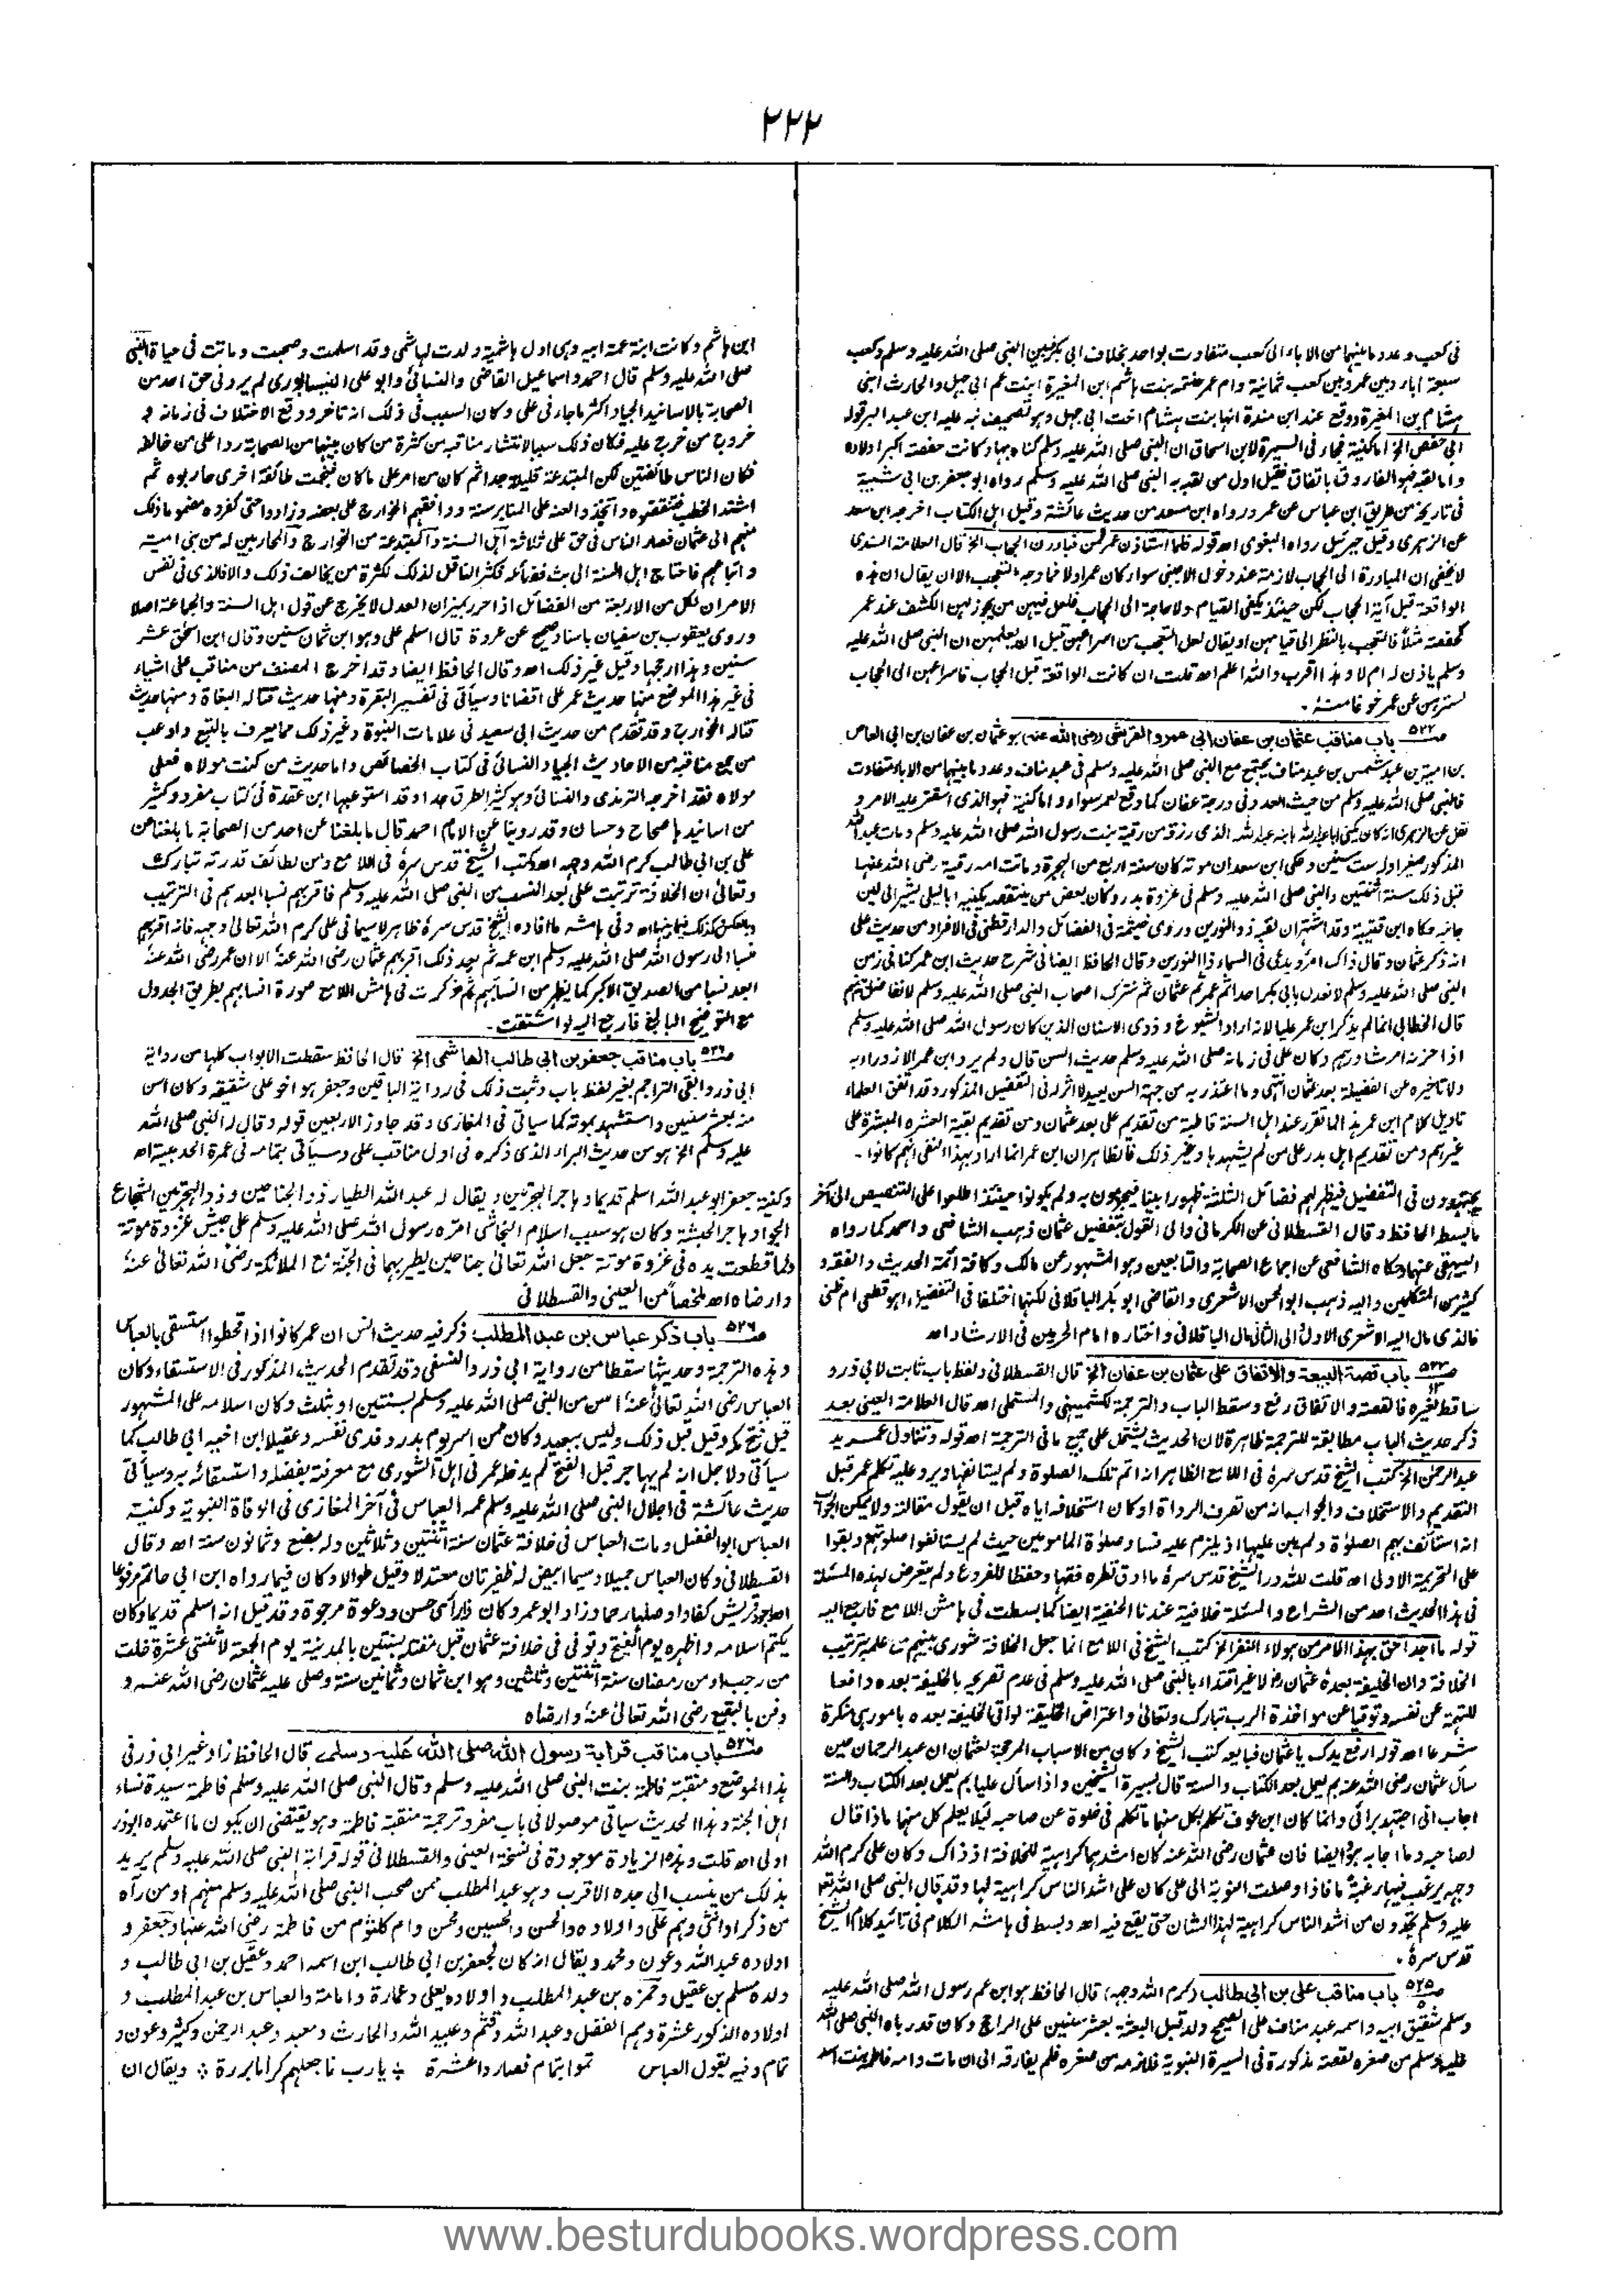 ۲۲۲
فى كعب وعدد ما بينهما من الآباء الى كعب متفاوت بواحد بخلاف ابى بكر فبين النبى صلى الله عليه وسلم وكعب
سبعة آباء وبين عمر وبين كعب ثمانية وام عمر حنتمة بنت هاشم ابن المغيرة ابنت عم ابى جهل والحارث ابنى
هشام بن المغيرة ووقع عند ابن مندة انها بنت هشام اخت ابى جهل وهو تصحيف نبه عليه ابن عبد البر قوله
ابى حفص الخ اما كنيته فجاء فى السيرة لابن اسحاق ان النبى صلى الله عليه وسلم كناه بها وكانت حفصة اكبر اولاده
واما لقبه فهو الفاروق باتفاق فقيل اول من لقبه به النبى صلى الله عليه وسلم رواه ابو جعفر بن ابى شيبة
فى تاريخه من طريق ابن عباس عن عمر ورواه ابن سعد من حديث عائشة وقيل اهل الكتاب اخرجه ابن سعد
عن الزهرى وقيل جبرئيل رواه البغوى اھ قوله فلما استاذن عمر قمن فبادرن الحجاب الخ قال العلامة السندى
لا يخفى ان المبادرة الى الحجاب لازمة عند دخول الاجنبى سواء كان عمر اولا فما وجه التعجب الا ان يقال ان هذه
الواقعة قبل آية الحجاب لكن حينئذ يكفى القيام ولا حاجة الى الحجاب فلعل فيهن من يجوز لهن الكشف عند عمر
كحفصة مثلاً فالتعجب بالنظر الى قيامهن او يقال لعل التعجب من اسراعهن قبل ان يعلمهن ان النبى صلى الله عليه
وسلم ياذن له ام لا وهذا اقرب والله اعلم اھ قلت ان كانت الواقعة قبل الحجاب فاسراعهن الى الحجاب
لتسترهن عن عمر خوفا منه ۔
ص۵۲۲ باب مناقب عثمان بن عفان ابى عمرو القرشى (رضى الله عنه) هو عثمان بن عفان بن ابى العاص
بن امية بن عبد شمس بن عبد مناف يجتمع مع النبى صلى الله عليه وسلم فى عبد مناف وعدد ما بينهما من الآباء متفاوت
فالنبى صلى الله عليه وسلم من حيث العدد فى درجة عفان كما وقع لعمر سواء واما كنيته فهو الذى استقر عليه الامر و
نقل عن الزهرى انه كان يكنى ابا عبد الله بابنه عبد الله الذى رزقه من رقية بنت رسول الله صلى الله عليه وسلم ومات عبد الله
المذكور صغيرا وله ست سنين وحكى ابن سعد ان موته كان سنة اربع من الهجرة وماتت امه رقية رضى الله عنها
قبل ذلك سنة اثنتين والنبى صلى الله عليه وسلم فى غزوة بدر وكان بعض من ينتقصه يكنيه ابا ليلى يشير الى لين
جانبه حكاه ابن قتيبة وقد اشتهر ان لقبه ذو النورين وروى خيثمة فى الفضائل والدارقطنى فى الافراد من حديث على
انه ذكر عثمان وقال ذاك امرؤ يدعى فى السماء ذا النورين وقال الحافظ ايضا فى شرح حديث ابن عمر كنا فى زمن
النبى صلى الله عليه وسلم لا نعدل بابى بكر احدا ثم عمر ثم عثمان ثم نترك اصحاب النبى صلى الله عليه وسلم لا نفاضل بينهم
قال الخطابى انما لم يذكر ابن عمر عليا لانه اراد الشيوخ وذوى الاسنان الذين كان رسول الله صلى الله عليه وسلم
اذا حزبه امر شاورهم وكان على فى زمانه صلى الله عليه وسلم حديث السن قال ولم يرد ابن عمر الازدراء به
ولا تاخيره عن الفضيلة بعد عثمان انتهى وما اعتذر به من جهة السن بعيد لا اثر له فى التفضيل المذكور وقد اتفق العلماء
تاويل كلام ابن عمر هذا لما تقرر عند اهل السنة قاطبة من تقديم على بعد عثمان ومن تقديم بقية العشرة المبشرة على
غيرهم ومن تقديم اهل بدر على من لم يشهدها وغير ذلك فالظاهر ان ابن عمر انما اراد بهذا النفى انهم كانوا ۔
يجتهدون فى التفضيل فيظهر لهم فضائل الثلثة ظهورا بينا فيجزمون به ولم يكونوا حينئذ اطلعوا على التنصيص الى آخر
ما بسط الحافظ وقال القسطلانى عن الكرمانى والى القول بتفضيل عثمان ذهب الشافعى واحمد كما رواه
البيهقى عنهما وحكاه الشافعى عن اجماع الصحابة والتابعين وهو المشهور عن مالك وكافة ائمة الحديث والفقه و
كثير من المتكلمين واليه ذهب ابو الحسن الاشعرى والقاضى ابو بكر الباقلانى لكنهما اختلفا فى التفضيل اهو قطعى ام ظنى
فالذى مال اليه الاشعرى الاول والى الثانى مال الباقلانى واختاره امام الحرمين فى الارشاد اھ
ص۵۲۳ باب قصة البيعة والاتفاق على عثمان بن عفان الخ قال القسطلانى ولفظ باب ثابت لابى ذر و
ساقط لغيره فالقصة والاتفاق رفع وسقط الباب والترجمة للكشميهنى والمستملى اھ قال العلامة العينى بعد
ذكر حديث الباب مطابقة للترجمة ظاهرة لان الحديث يشتمل على جميع ما فى الترجمة اھ قوله وتناول عمر يد
عبد الرحمٰن الخ كتب الشيخ قدس سره فى اللامع الظاهر انه اتم تلك الصلوة ولم يستانفها ويرد عليه تكلم عمر قبل
التقديم والاستخلاف والجواب انه من تصرف الرواة او كان استخلافه اياه قبل ان يقول مقالته ولا يمكن الجواب
انه استأنف بهم الصلوٰة ولم يبن عليها اذ يلزم عليه فساد صلوٰة المامومين حيث لم يستانفوا صلوتهم وبقوا
على التحريمة الاولى اھ قلت لله در الشيخ قدس سره ما ادق نظره فقها وحفظا للفروع ولم يتعرض لهذه المسئلة
فى هذا الحديث احد من الشراح والمسئلة خلافية عندنا الحنفية ايضا كما بسطت فى هامش اللامع فارجع اليه
قوله ما اجد احق بهذا الامر من هولاء النفر الخ كتب الشيخ فى اللامع انما جعل الخلافة شورى بينهم مع علمه بترتيب
الخلافة وان الخليفة بعده عثمان لا غير اقتداء بالنبى صلى الله عليه وسلم فى عدم تصريحه بالخليفة بعده ودافعا
للتهمة عن نفسه وتوقيا عن مواخذة الرب تبارك وتعالىٰ واعتراض الخليقة لو اتى الخليفة بعده بامور هى منكرة
شرعا اھ قوله ارفع يدك يا عثمان فبايعه كتب الشيخ وكان من الاسباب المرجحة لعثمان ان عبد الرحمان حين
سأل عثمان رضى الله عنه بم يعمل بعد الكتاب والسنة قال بسيرة الشيخين واذا سأل عليا بم يعمل بعد الكتاب والسنة
اجاب انى اجتهد برائى وانما كان ابن عوف تكلم بكل منهما ما تكلم فى خلوة عن صاحبه لئلا يعلم كل منهما ماذا قال
لصاحبه وما اجابه هو ايضا فان عثمان رضى الله عنه كان اشدهما كراهية للخلافة اذ ذاك وكان على كرم الله
وجهه يرغب فيها رغبة ما فاذا وصلت النوبة الى على كان على اشد الناس كراهية لها وقد قال النبى صلى الله
عليه وسلم تجدون من اشد الناس كراهية لهذا الشان حتى يقع فيه اھ وبسط فى هامشه الكلام فى تائيد كلام الشيخ
قدس سره ۔
ص۵۲۵ باب مناقب على بن ابى طالب (كرم الله وجهه) قال الحافظ هو ابن عم رسول الله صلى الله عليه
وسلم شقيق ابيه واسمه عبد مناف على الصحيح ولد قبل البعثة بعشر سنين على الراجح وكان قد رباه النبى صلى الله
عليه وسلم من صغره لقصة مذكورة فى السيرة النبوية فلازمه من صغره فلم يفارقه الى ان مات وامه فاطمة بنت اسد
ابن هاشم وكانت ابنة عمة ابيه وهى اول هاشمية ولدت لهاشمى وقد اسلمت وصحبت وماتت فى حياة النبى
صلى الله عليه وسلم قال احمد واسماعيل القاضى والنسائى وابو على النيسابورى لم يرد فى حق احد من
الصحابة بالاسانيد الجياد اكثر ما جاء فى على وكان السبب فى ذلك انه تاخر ووقع الاختلاف فى زمانه و
خروج من خرج عليه فكان ذلك سببا لانتشار مناقبه من كثرة من كان بينها من الصحابة ردا على من خالفه
فكان الناس طائفتين لكن المبتدعة قليلة جدا ثم كان من امر على ما كان فنجمت طائفة اخرى حاربوه ثم
اشتد الخطب فتنقصوه واتخذوا لعنه على المنابر سنة ووافقهم الخوارج على بغضه وزادوا حتى كفروه مضموما ذلك
منهم الى عثمان فصار الناس فى حق على ثلاثة اهل السنة والمبتدعة من الخوارج والمحاربين له من بنى امية
واتباعهم فاحتاج اهل السنة الى بث فضائله فكثر الناقل لذلك لكثرة من يخالف ذلك والا فالذى فى نفس
الامر ان لكل من الاربعة من الفضائل اذا حرر بميزان العدل لا يخرج عن قول اهل السنة والجماعة اصلا
وروى يعقوب بن سفيان باسناد صحيح عن عروة قال اسلم على وهو ابن ثمان سنين وقال ابن اسحٰق عشر
سنين وهذا ارجحها وقيل غير ذلك اھ وقال الحافظ ايضا وقد اخرج المصنف من مناقب على اشياء
فى غير هذا الموضع منها حديث عمر على اقضانا وسيأتى فى تفسير البقرة ومنها حديث قتاله البغاة ومنها حديث
قتاله الخوارج وقد تقدم من حديث ابى سعيد فى علامات النبوة وغير ذلك مما يعرف بالتتبع واوعب
من جمع مناقبه من الاحاديث الجياد النسائى فى كتاب الخصائص واما حديث من كنت مولاه فعلى
مولاه فقد اخرجه الترمذى والنسائى وهو كثير الطرق جدا وقد استوعبها ابن عقدة فى كتاب مفرد وكثير
من اسانيدها صحاح وحسان وقد روينا عن الامام احمد قال ما بلغنا عن احد من الصحابة ما بلغنا عن
على بن ابى طالب كرم الله وجهه اھ كتب الشيخ قدس سره فى اللامع ومن لطائف قدرته تبارك
وتعالىٰ ان الخلافة ترتبت على بعد النسب من النبى صلى الله عليه وسلم فاقربهم نسبا ابعدهم فى الترتيب
وبالعكس كذلك فيما بينها اھ وفى هامشه ما افاده الشيخ قدس سره ظاهر لا سيما فى على كرم الله تعالىٰ وجهه فانه اقربهم
نسبا الى رسول الله صلى الله عليه وسلم ابن عمه ثم بعد ذلك اقربهم عثمان رضى الله عنه الا ان عمر رضى الله عنه
ابعد نسبا من الصديق الاكبر كما يظهر من انسابهم ثم ذكرت فى هامش اللامع صورة انسابهم بطريق الجدول
مع التوضيح البالغ فارجع اليه لو اشتقت ۔
ص۵۲۶ باب مناقب جعفر بن ابى طالب الهاشمى الخ قال الحافظ سقطت الابواب كلها من رواية
ابى ذر وابقى التراجم بغير لفظ باب وثبت ذلك فى رواية الباقين وجعفر هو اخو على شقيقه وكان اسن
منه بعشر سنين واستشهد بموته كما سياتى فى المغازى وقد جاوز الاربعين قوله وقال له النبى صلى الله
عليه وسلم الخ هو من حديث البراء الذى ذكره فى اول مناقب على وسيأتى بتمامه فى عمرة الحديبية اھ
وكنية جعفر ابو عبد الله اسلم قديما وهاجر الهجرتين ويقال له عبد الله الطيار ذو الجناحين وذو الهجرتين الشجاع
الجواد هاجر الحبشة وكان هو سبب اسلام النجاشى امره رسول الله صلى الله عليه وسلم على جيش غزوة موتة
ولما قطعت يده فى غزوة موتة جعل الله تعالىٰ جناحين يطير بهما فى الجنة مع الملائكة رضى الله تعالىٰ عنه
وارضاه اھ ملخصا من العينى والقسطلانى
ص۵۲۶ باب ذكر عباس بن عبد المطلب ذكر فيه حديث انس ان عمر كانوا اذا قحطوا استسقى بالعباس
وهذه الترجمة وحديثها سقطا من رواية ابى ذر والنسفى وقد تقدم الحديث المذكور فى الاستسقاء وكان
العباس رضى الله تعالىٰ عنه اسن من النبى صلى الله عليه وسلم بسنتين او بثلث وكان اسلامه على المشهور
قبل فتح مكة وقيل قبل ذلك وليس ببعيد وكان ممن اسر يوم بدر وفدى نفسه وعقيلا ابن اخيه ابى طالب كما
سيأتى ولاجل انه لم يهاجر قبل الفتح لم يدخله عمر فى اهل الشورى مع معرفته بفضله واستسقائه به وسيأتى
حديث عائشة فى اجلال النبى صلى الله عليه وسلم عمه العباس فى آخر المغازى فى الوفاة النبوية وكنية
العباس ابو الفضل ومات العباس فى خلافة عثمان سنة اثنتين وثلاثين وله بضع وثمانون سنة اھ وقال
القسطلانى وكان العباس جميلا وسيما ابيض له ظفيرتان معتدلا وقيل طوالا وكان فيما رواه ابن ابى حاتم مرفوعا
اجود قريش كفا واوصلها رحما وزاد ابو عمر وكان ذا رأى حسن ودعوة مرجوة وقد قيل انه اسلم قديما وكان
يكتم اسلامه واظهره يوم الفتح وتوفى فى خلافة عثمان قبل مقتله بسنتين بالمدينة يوم الجمعة لاثنتى عشرة خلت
من رجب او من رمضان سنة اثنتين وثلثين وهو ابن ثمان وثمانين سنة وصلى عليه عثمان رضى الله عنه و
دفن بالبقيع رضى الله تعالىٰ عنه وارضاه
ص۵۲۶ باب مناقب قرابة رسول الله صلى الله عليه وسلم قال الحافظ زاد غير ابى ذر فى
هذا الموضع ومنقبة فاطمة بنت النبى صلى الله عليه وسلم وقال النبى صلى الله عليه وسلم فاطمة سيدة نساء
اهل الجنة وهذا الحديث سياتى موصولا فى باب مفرد ترجمة منقبة فاطمة وهو يقتضى ان يكون ما اعتمده ابو ذر
اولى اھ قلت وهذه الزيادة موجودة فى نسخة العينى والقسطلانى قوله قرابة النبى صلى الله عليه وسلم يريد
بذلك من ينسب الى جده الاقرب وهو عبد المطلب ممن صحب النبى صلى الله عليه وسلم منهم او من رآه
من ذكر او انثى وهم على واولاده والحسن والحسين ومحسن وام كلثوم من فاطمة رضى الله عنها وجعفر و
اولاده عبد الله وعون ومحمد ويقال انه كان لجعفر بن ابى طالب ابن اسمه احمد وعقيل بن ابى طالب و
ولده مسلم بن عقيل وحمزه بن عبد المطلب واولاده يعلى وعمارة وامامة والعباس بن عبد المطلب و
اولاده الذكور عشرة وهم الفضل وعبد الله وقثم وعبيد الله والحارث ومعبد وعبد الرحمٰن وكثير وعون و
تمام وفيه يقول العباس تموا بتمام فصاروا عشرة ÷ يا رب فاجعلهم كراما بررة ÷ ويقال ان
www.besturdubooks.wordpress.com